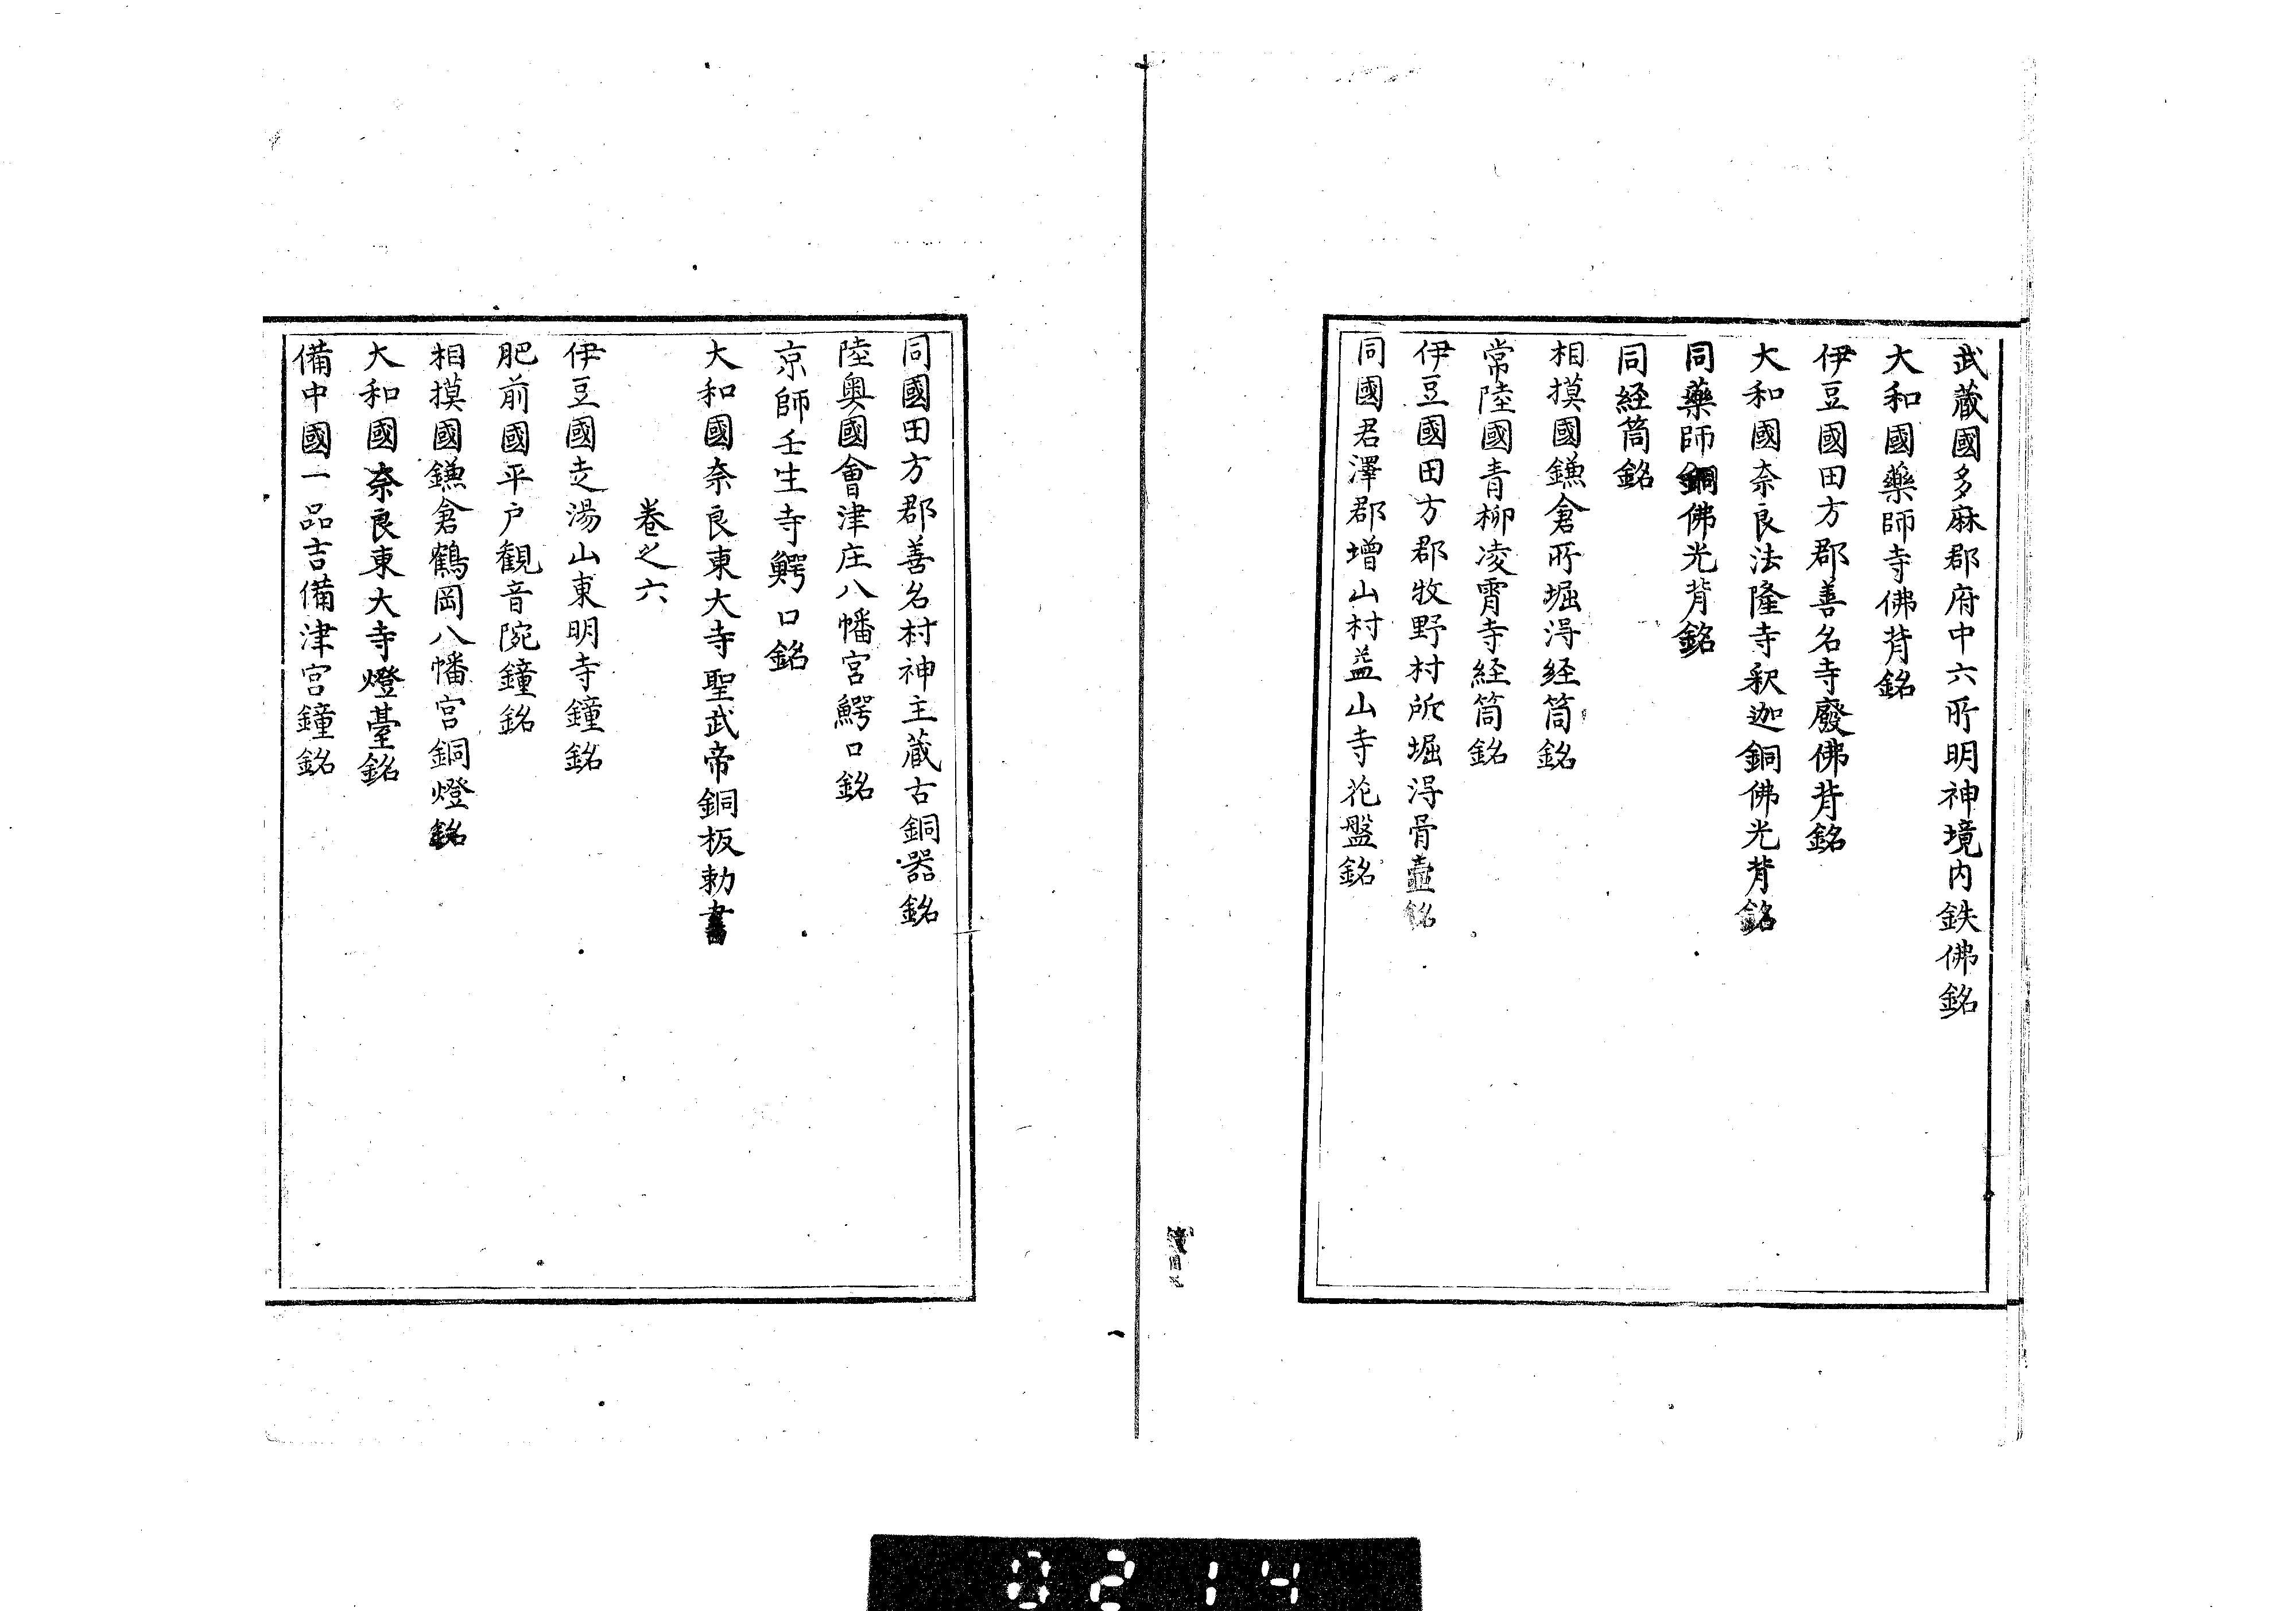 武蔵國多麻郡府中六所明神境内鉄佛銘
大和國藥師寺佛背銘
伊豆國田方郡善名寺廢佛背銘
大和國奈良法隆寺釈迦銅佛光背銘
同藥師銅佛光背銘
同経筒銘
相摸國鎌倉所堀淂経筒銘
常陸國青柳凌霄寺経筒銘
伊豆國田方郡牧野村所堀淂骨壷銘
同國君澤郡増山村益山寺花盤銘
同國田方郡善名村神主蔵古銅器銘
陸奥國會津庄八幡宮鰐口銘
京師壬生寺鰐口銘
大和國奈良東大寺聖武帝銅板勅書
巻之六
伊豆國走湯山東明寺鐘銘
肥前國平戸観音院鐘銘
相摸國鎌倉鶴岡八幡宮銅燈銘
大和國奈良東大寺燈䑓銘
備中國一品吉備津宮鐘銘
0214